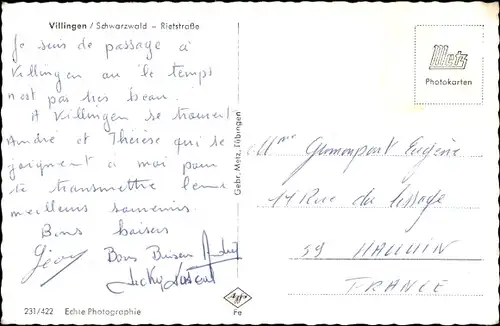 Villingen / Schwarzwald – Rietstraße
Je suis de passage à
Villingen où le temps
n'est pas très beau.
A Villingen se trouvent
André et Thérèse qui se
joignent à moi pour
te transmettre leurs
meilleurs souvenirs
Bons baisers
Géo Bons Baisers André
231/422 Echte Photographie
Gebr. Metz, Tübingen
Agfa
Fe
Metz
Photokarten
Mme Gumonpont Eugénie
14 Rue du
59 HALLUIN
FRANCE